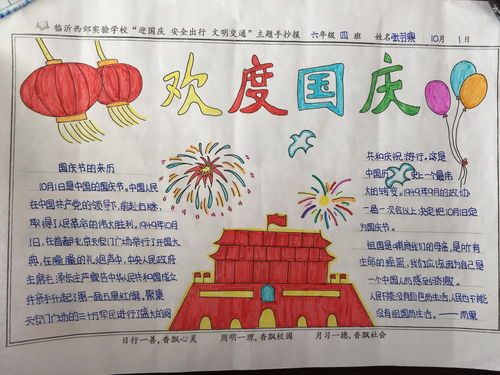 临沂西郊实验学校“迎国庆 安全出行 文明交通”主题手抄报 六年级 四 班 姓名 张羽 10月 1日
欢度国庆
国庆节的来历
10月1日是中国的国庆节。中国人民
在中国共产党的领导下,前赴后继,
取得人民革命的伟大胜利。1949年10月
1日,在首都北京天安门广场举行了开国大
典,在隆隆的礼炮声中,中央人民政府
主席毛泽东庄严宣告中华人民共和国成立
并亲手升起了第一面五星红旗。聚集
天安门广场的三十万军民进行了盛大的阅
兵和庆祝游行。这是
中国历史上一个最伟
大的转变。1949年9月的政协
一届一次会议上决定把10月1日定
为国庆节。
祖国是哺育我们的母亲,是所有
生命的摇篮,我们应该因为自己是
一个中国人而感到骄傲。
人民不能没有面包而生活,人民也不能
没有祖国而生活。——雨果
日行一善,香飘心灵 周明一理,香飘校园 月习一德,香飘社会